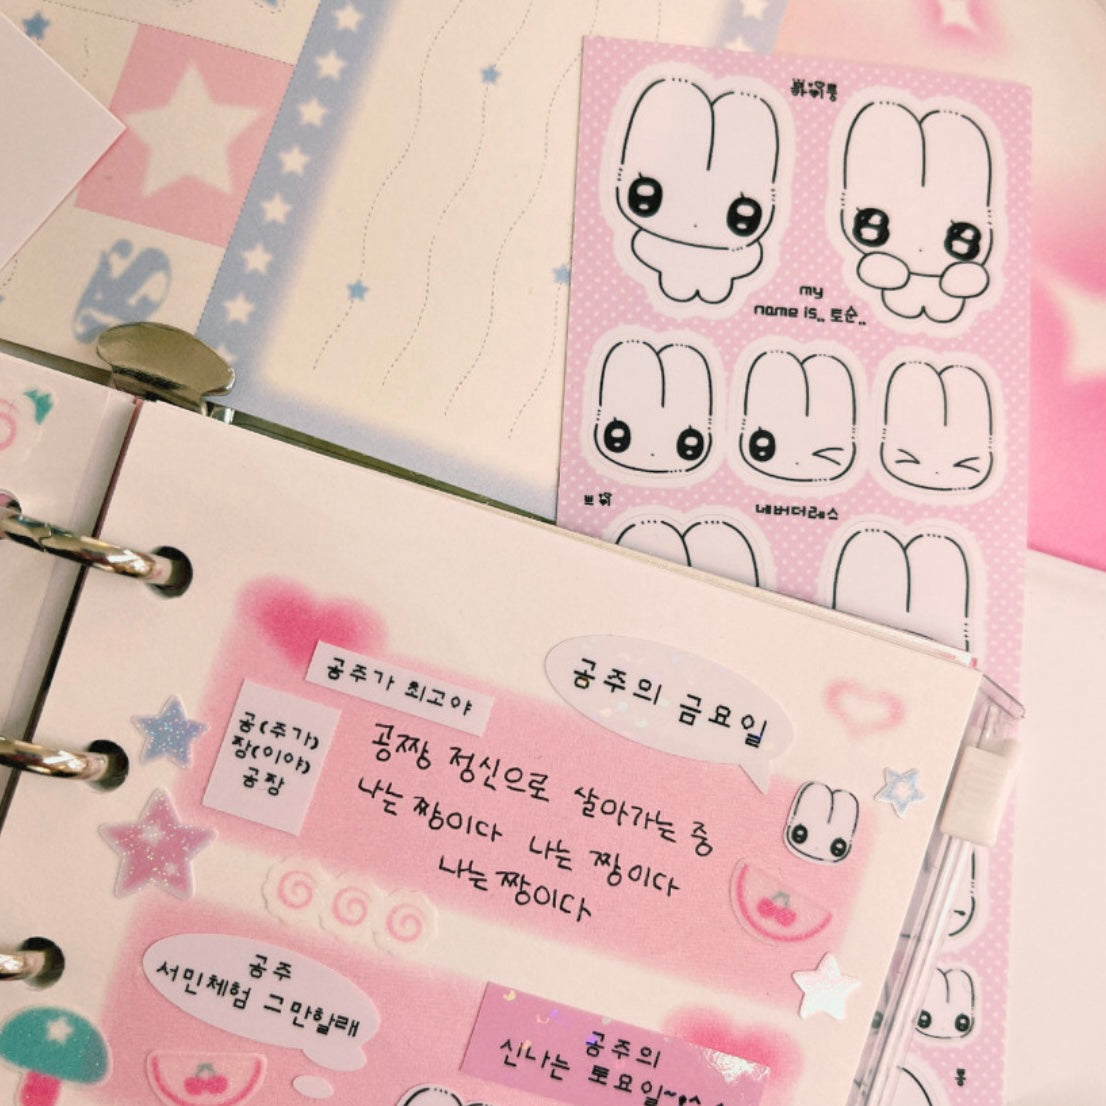 my
name is.. 토순..
네버더레스
공주가 최고야
공주의 금요일
공(주가)
짱(이야)
공짱
공짱 정신으로 살아가는 중
나는 짱이다 나는 짱이다
나는 짱이다
공주
서민체험 그만할래
공주의
신나는 토요일~